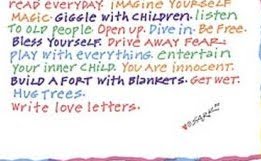 read everyday. imagine yourself
magic. giggle with children. listen
to old people. Open up. Dive in. Be Free.
Bless yourself. Drive away fear.
play with everything. entertain
your inner child. You are innocent.
Build a fort with blankets. Get wet.
Hug trees.
Write love letters.